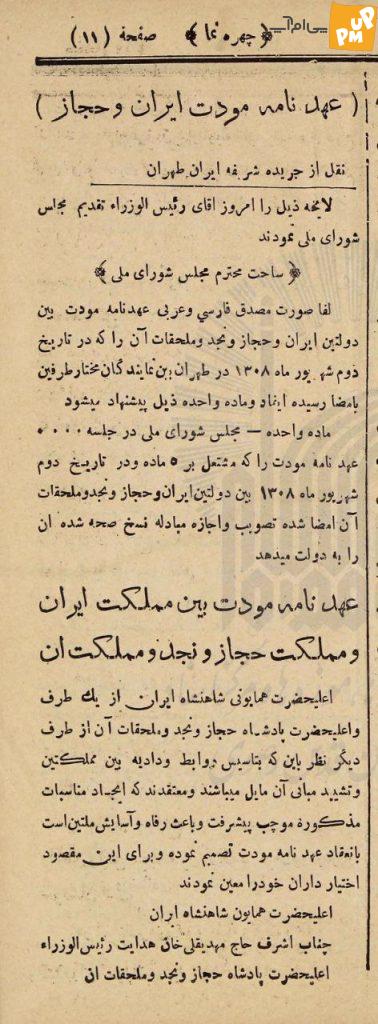 پی‌ام‌آپ
UP
PM
﴿ چهره نما ﴾ صفحة (۱۱)
( عهد نامه مودت ایران و حجاز )
نقل از جریده شریفه ایران طهران
لایحه ذیل را امروز اقای رئیس الوزراء تقدیم مجلس
شورای ملی نمودند
﴿ ساحت محترم مجلس شورای ملی ﴾
لفا صورت مصدق فارسي وعربی عهدنامه مودت بین
دولتین ایران وحجاز ونجد وملحقات آن را که در تاریخ
دوم شهریور ماه ۱۳۰۸ در طهران بین نمایندگان مختار طرفین
بامضا رسیده ایفاد وماده واحده ذیل پیشنهاد میشود
ماده واحده — مجلس شورای ملی در جلسه ....
عهد نامه مودت را که مشتمل بر ۵ ماده ودر تاریخ دوم
شهریور ماه ۱۳۰۸ بین دولتین ایران وحجاز ونجد وملحقات
آن امضا شده تصویب واجازه مبادله نسخ صحه شده ان
را به دولت میدهد
عهد نامه مودت بین مملکت ایران
و مملکت حجاز و نجد و مملکت ان
اعلیحضرت همایونی شاهنشاه ایران از یك طرف
واعلیحضرت پادشاه حجاز ونجد وملحقات آن از طرف
دیگر نظر باین که بتاسیس روابط ودادیه بین مملکتین
وتشیید مبانی آن مایل میباشند ومعتقدند که ایجاد مناسبات
مذکوره موجب پیشرفت وباعث رفاه وآسایش ملتین است
بانعقاد عهد نامه مودت تصمیم نموده وبرای این مقصود
اختیار داران خودرا معین نمودند
اعلیحضرت همایون شاهنشاه ایران
جناب اشرف حاج مهدیقلی خان هدایت رئیس الوزراء
اعلیحضرت پادشاه حجاز ونجد وملحقات ان